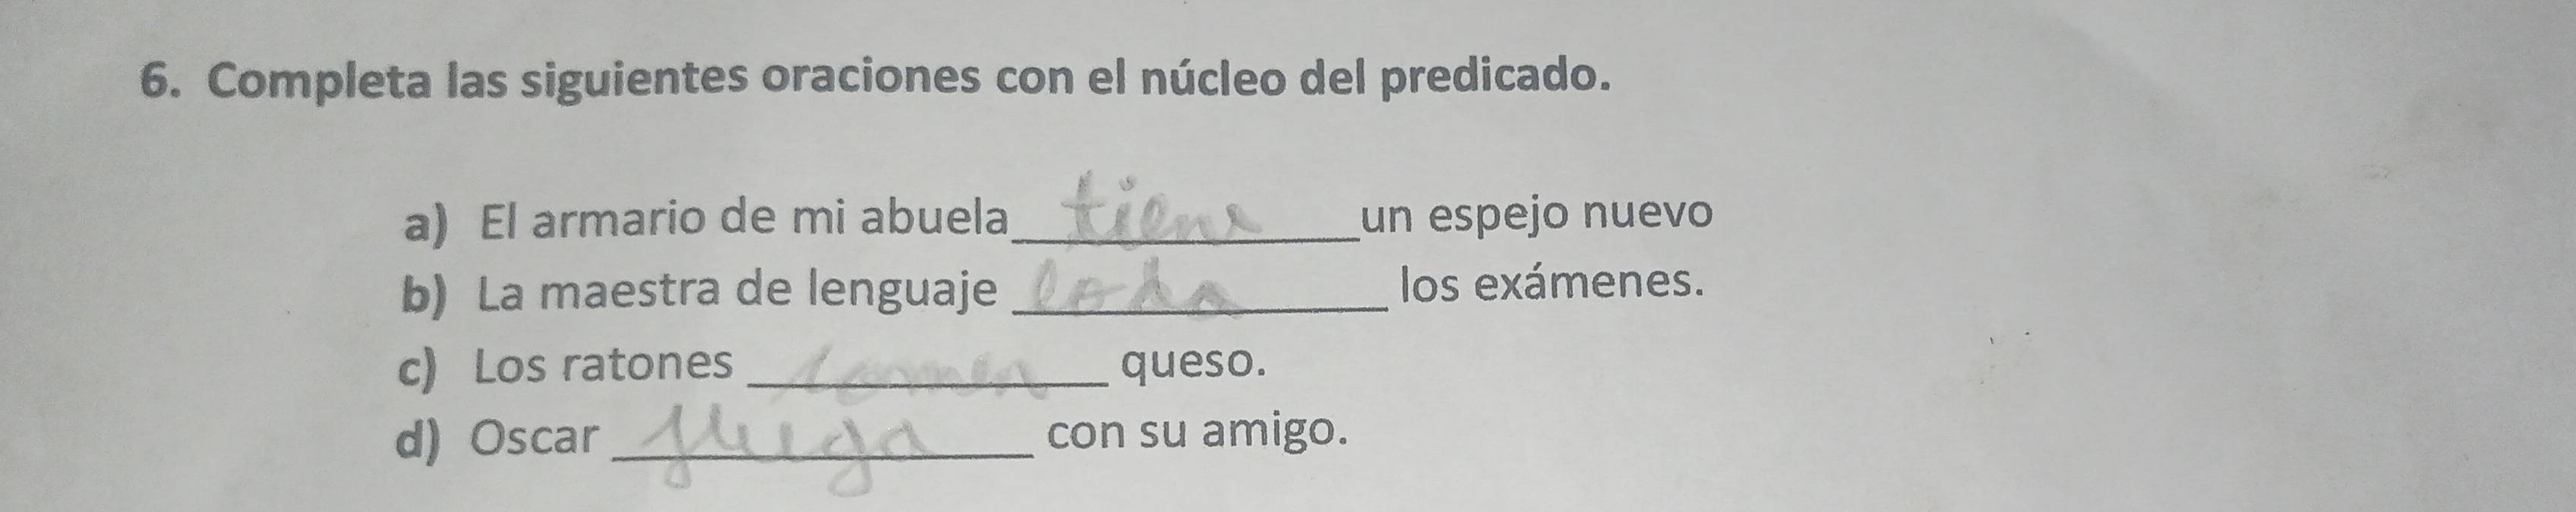 6. Completa las siguientes oraciones con el núcleo del predicado.
a) El armario de mi abuela tiene un espejo nuevo
b) La maestra de lenguaje los exámenes.
c) Los ratones comen queso.
d) Oscar juega con su amigo.